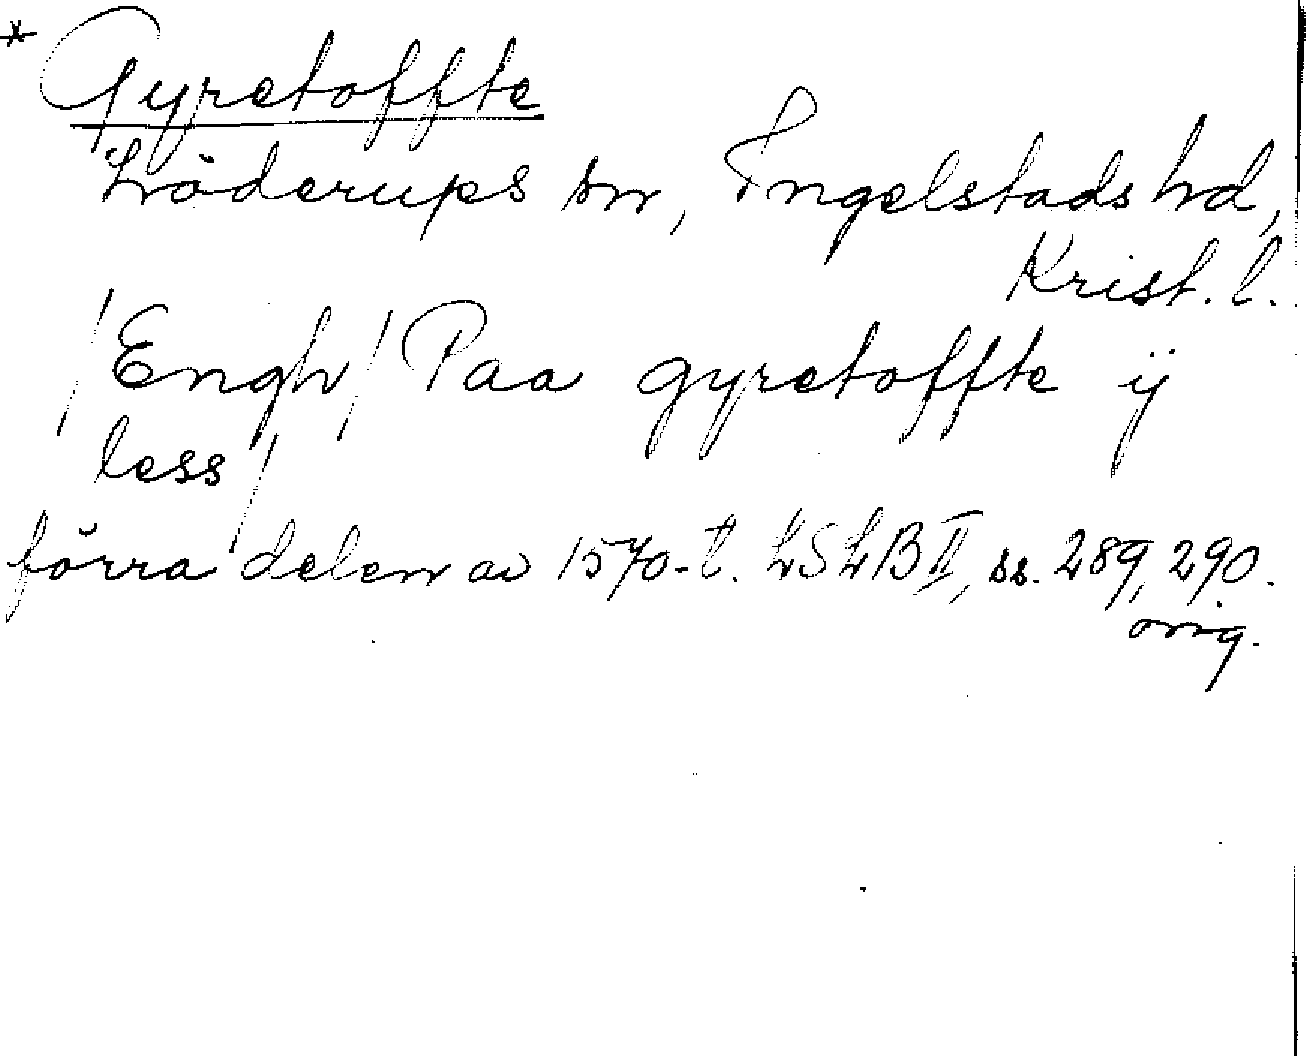 * Gyretoffte
Löderups sn, Ingelstads hd,
Krist. l.
/Engh/ Paa gyretoffte ij
less/
förra delen av 1570-t. LSLB II, ss. 289, 290.
orig.